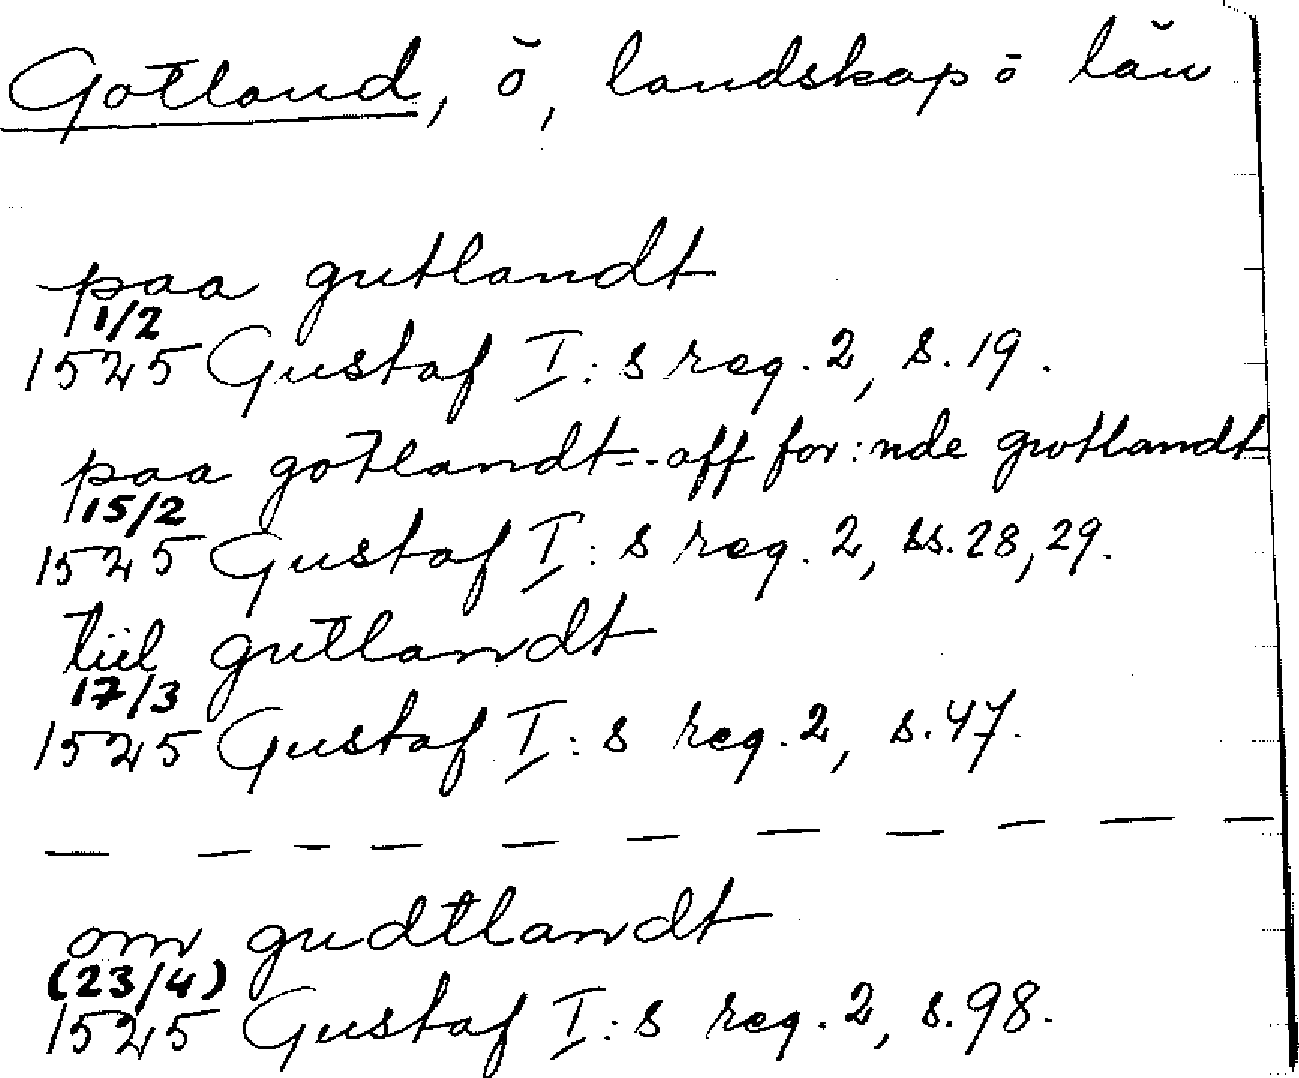 Gotland, ö, landskap o län
paa gutlandt
1/2
1525 Gustaf I:s reg. 2, s. 19.
paa gotlandt -- aff for:nde gwtlandt
15/2
1525 Gustaf I:s reg. 2, ss. 28, 29.
tiil gutlandt
17/3
1525 Gustaf I:s reg. 2, s. 47.
om gudtlandt
(23/4)
1525 Gustaf I:s reg. 2, s. 98.